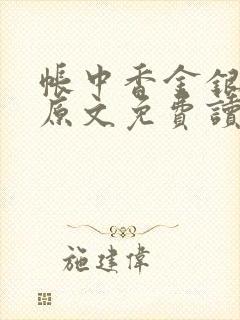 帳中香金銀
原文免費讀
施建偉